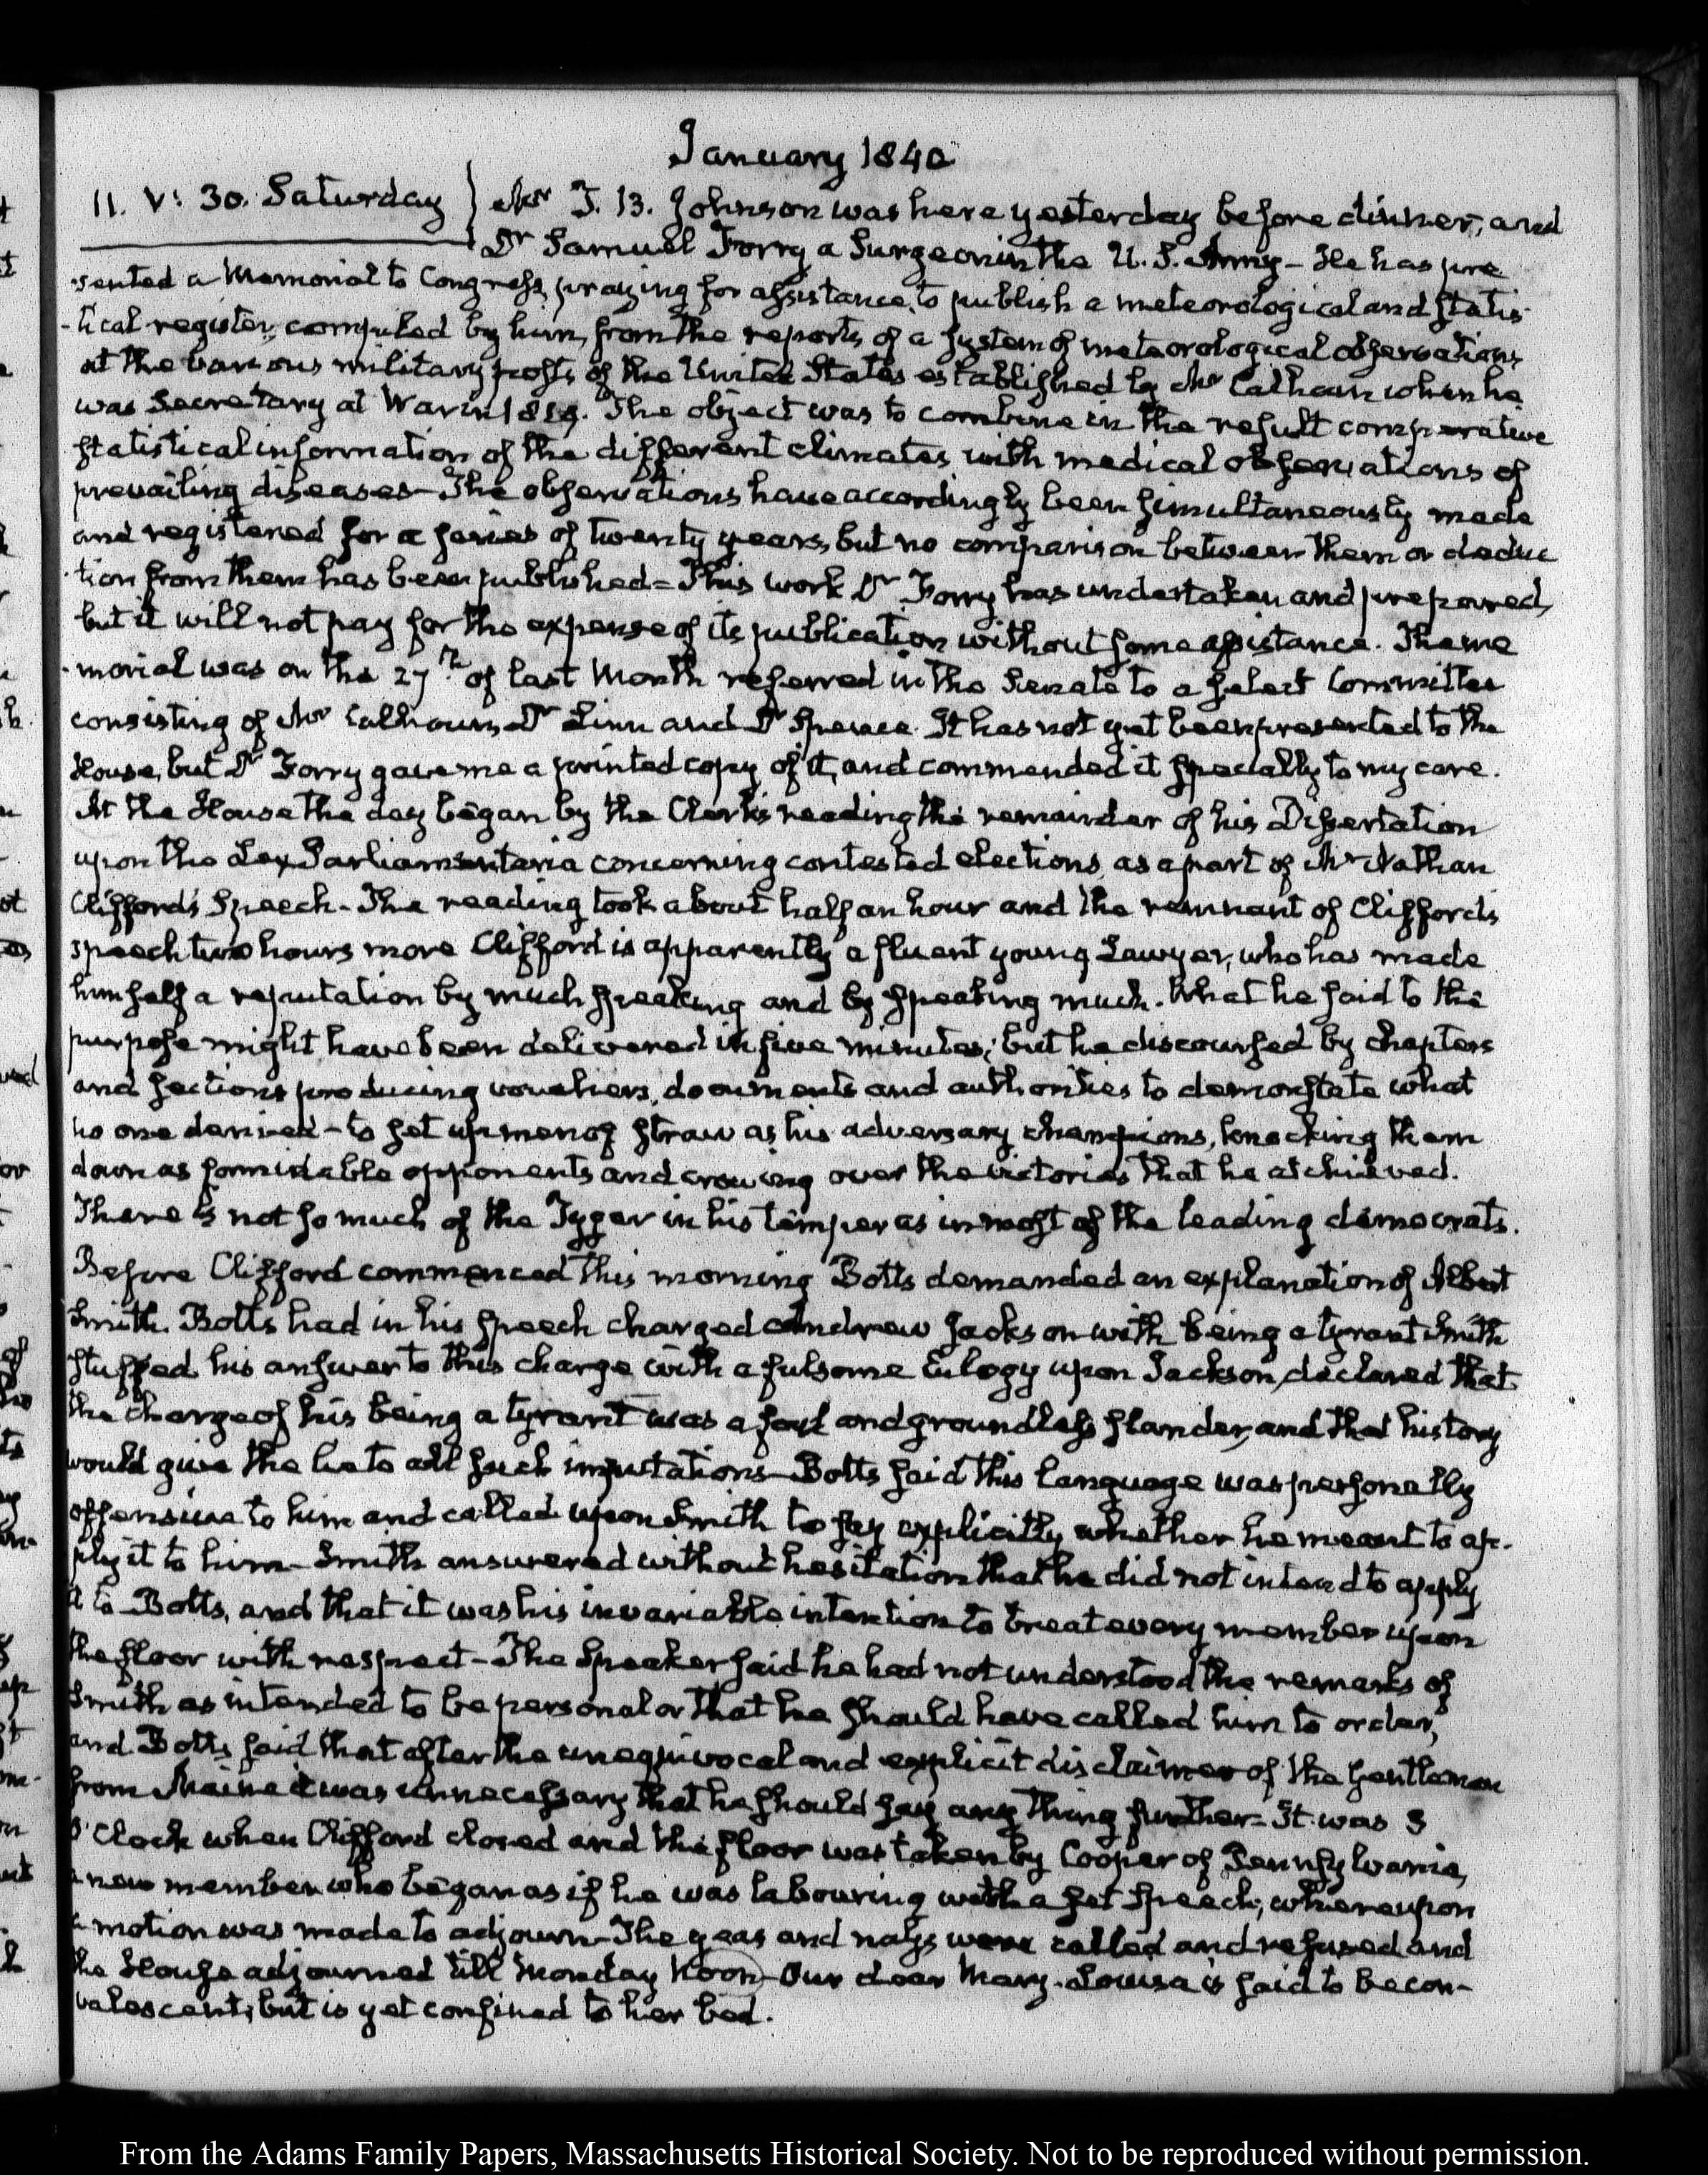 January 1840
11. V: 30. Saturday } Mr J. B. Johnson was here yesterday before dinner, and
Dr Samuel Forry a Surgeon in the U. S. Army - He has pre
-sented a Memorial to Congress, praying for assistance, to publish a meteorological and statis-
-tical register, compiled by him, from the reports of a system of meteorological observations
at the various military posts of the United States established by Mr Calhoun when he
was Secretary at War in 1819. The object was to combine in the result comparative
statistical information of the different climates with medical observations of
prevailing diseases - The observations have accordingly been simultaneously made
and registered for a series of twenty years, but no comparison between them or deduc
-tion from them has been published = This work Dr Forry has undertaken and prepared,
but it will not pay for the expense of its publication without some assistance. The me
-morial was on the 27th of last Month referred in the Senate to a select Committee
consisting of Mr Calhoun, Dr Linn and Dr Spence. It has not yet been presented to the
House, but Dr Forry gave me a printed copy of it, and commended it specially to my care.
At the House the day began by the Clerk's reading the remainder of his Dissertation
upon the Lex Parliamentaria concerning contested elections, as a part of Mr Nathan
Clifford's Speech - The reading took about half an hour and the remnant of Clifford's
speech two hours more Clifford is apparently a fluent young Lawyer, who has made
himself a reputation by much speaking and by speaking much. What he said to the
purpose might have been delivered in five minutes; but he discoursed by chapters
and sections producing vouchers, documents and authorities to demonstate what
no one denied - to set up men of straw as his adversary champions, knocking them
down as formidable opponents and crowing over the victories that he atchieved.
There is not so much of the Tyger in his temper as in most of the leading democrats.
Before Clifford commenced this morning Botts demanded an explanation of Albert
Smith. Botts had in his speech charged Andrew Jackson with being a tyrant Smith
stuffed his answer to this charge with a fulsome Eulogy upon Jackson, declared that
the charge of his being a tyrant was a foul and groundless slander, and that history
would give the lie to all such imputations - Botts said this language was personally
offensive to him and called upon Smith to say explicitly whether he meant to ap-
ply it to him - Smith answered without hesitation that he did not intend to apply
it to Botts, and that it was his invariable intention to treat every member upon
the floor with respect - The Speaker said he had not understood the remarks of
Smith as intended to be personal or that he should have called him to order,
and Botts said that after the unequivocal and explicit disclaimer of the Gentleman
from Maine it was unnecessary that he should say any thing further - It was 3
O'Clock when Clifford closed and the floor was taken by Cooper of Pennsylvania,
a new member who began as if he was labouring with a set Speech; whereupon
a motion was made to adjourn - The yeas and nays were called and refused and
the House adjourned till Monday Noon - Our dear Mary-Louisa is said to be con-
valescent; but is yet confined to her bed.
From the Adams Family Papers, Massachusetts Historical Society. Not to be reproduced without permission.